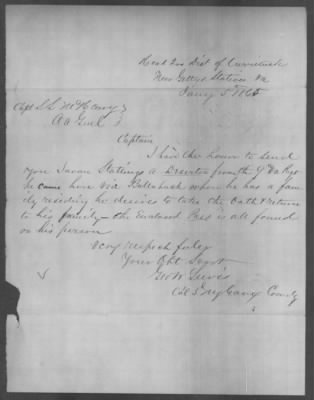 Head Qrs Dist of Currituck
Near Gettys Station Va
Jany 5th 1865
Capt S L McHenry
A A Genl
Captain
I have the honor to send
you Stallings a Deserter from the 9th Va Regt
he came here via where he has a fam
ily residing he desires to take the Oath & return
to his family — the Enclosed is all found
on his person
Very Respectfuly
Your Obt Servt
Geo W Lewis
Col 3d NY Cavy Comdg